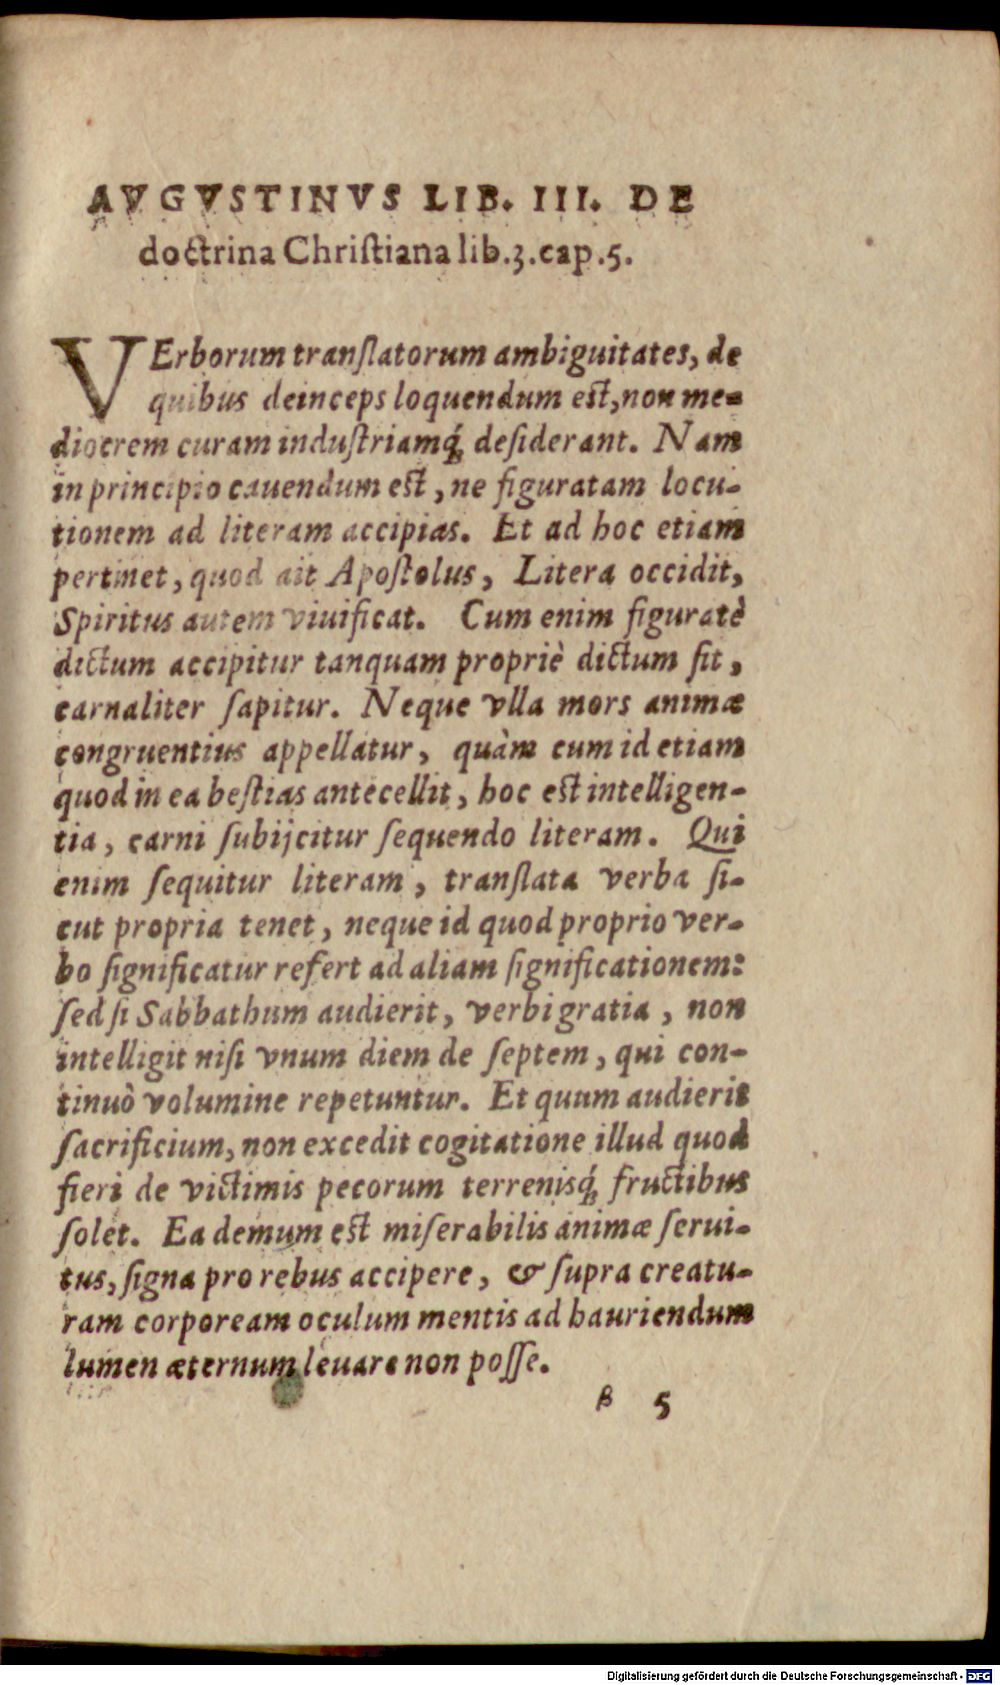 AVGVSTINVS LIB. III. DE
doctrina Chriſtiana lib.3.cap.5.
VErborum tranſlatorum ambiguitates, de
quibus deinceps loquendum eſt, non me-
diocrem curam induſtriamq́; deſiderant. Nam
in principio cauendum eſt, ne figuratam locu-
tionem ad literam accipias. Et ad hoc etiam
pertinet, quod ait Apoſtolus, Litera occidit,
Spiritus autem viuificat. Cum enim figuratè
dictum accipitur tanquam propriè dictum ſit,
carnaliter ſapitur. Neque vlla mors animæ
congruentius appellatur, quàm cum id etiam
quod in ea beſtias antecellit, hoc eſt intelligen-
tia, carni ſubijcitur ſequendo literam. Qui
enim ſequitur literam, tranſlata verba ſi-
cut propria tenet, neque id quod proprio ver-
bo ſignificatur refert ad aliam ſignificationem:
ſed ſi Sabbathum audierit, verbi gratia, non
intelligit niſi vnum diem de ſeptem, qui con-
tinuò volumine repetuntur. Et quum audierit
ſacrificium, non excedit cogitatione illud quod
fieri de victimis pecorum terrenisq́; fructibus
ſolet. Ea demum eſt miſerabilis animæ ſerui-
tus, ſigna pro rebus accipere, & ſupra creatu-
ram corpoream oculum mentis ad hauriendum
lumen æternum leuare non poſſe.
β 5
Digitalisierung gefördert durch die Deutsche Forschungsgemeinschaft - DFG